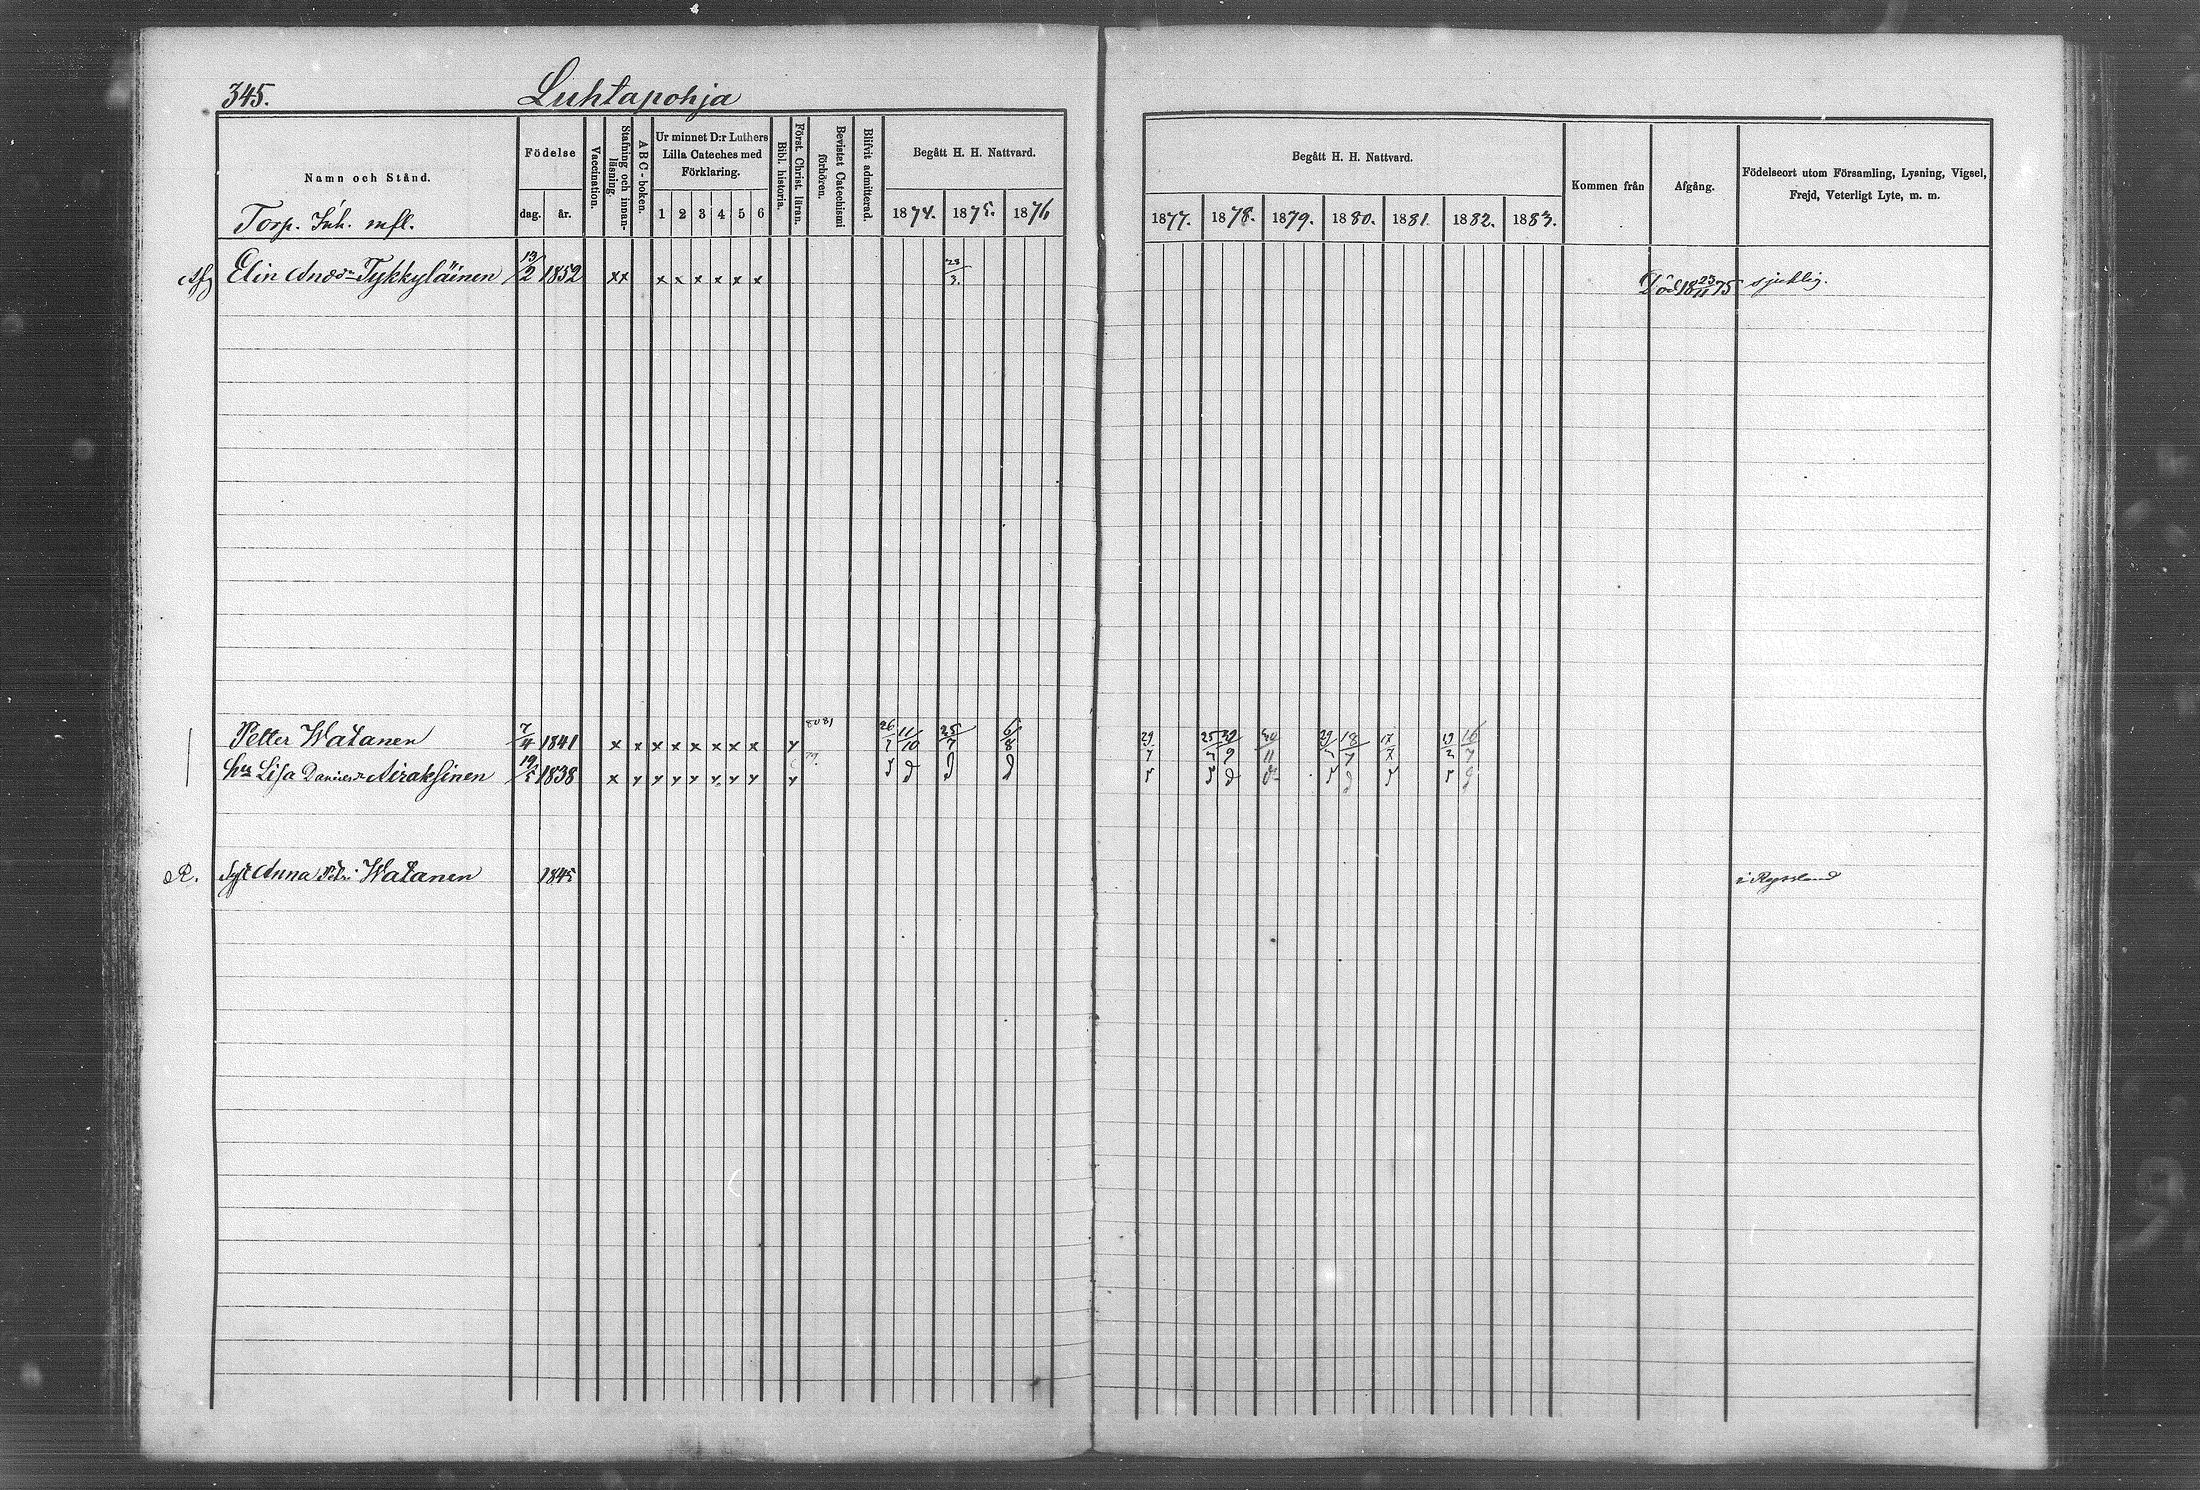 345. Luhtapohja
Namn och Stånd. Födelse dag. år. Vaccination. Stafning och innanläsning. A B C-boken. Ur minnet D:r Luthers Lilla Cateches med Förklaring. 1 2 3 4 5 6 Bibl. historia. Först. Christ. läran. Bevistat Catechismi förhören. Blifvit admitterad. Begått H. H. Nattvard. 1874. 1875. 1876
Begått H. H. Nattvard. 1877. 1878. 1879. 1880. 1881. 1882. 1883. Kommen från Afgång. Födelseort utom Församling, Lysning, Vigsel, Frejd, Veterligt Lyte, m. m.
Torp. Inh. mfl.
Elin And:dr Tykkyläinen 13/2 1852 x x x x x x x x 23/3. Död 18 23/11 75 sjuklig.
Petter Watanen 7/4 1841 x x x x x x x x 80 81 26/ 11/10 25/7 6/8 29/7 25/ 29/9 30/11 29/ 18/7 17/7 19/2 16/7
hu Lisa Daniels:dr Airaksinen 19/5 1838 x y y y y y y y y 79.
R. Syst Anna Petri Watanen 1845 i Ryssland